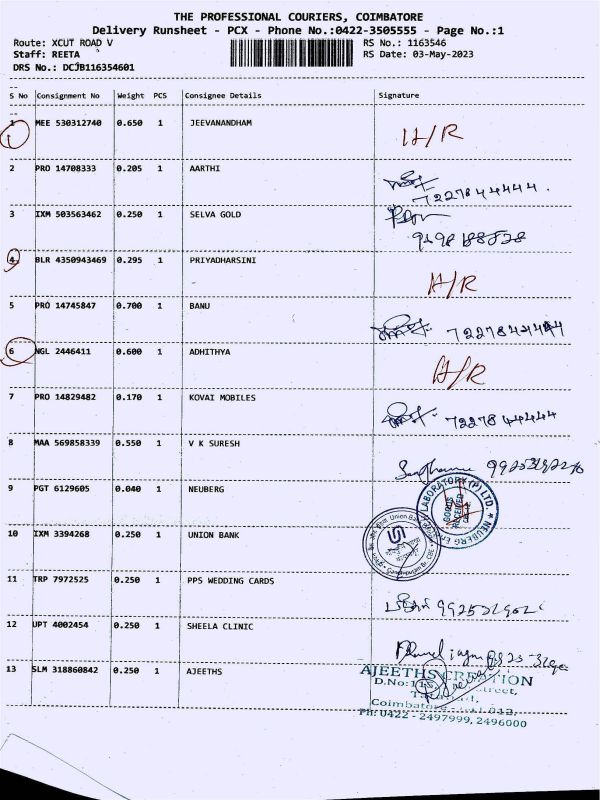 THE PROFESSIONAL COURIERS, COIMBATORE
Delivery Runsheet - PCX - Phone No.:0422-3505555 - Page No.:1
Route: XCUT ROAD V RS No.: 1163546
Staff: REETA RS Date: 03-May-2023
DRS No.: DCJB116354601
S No Consignment No Weight PCS Consignee Details Signature
1 MEE 530312740 0.650 1 JEEVANANDHAM H/R
2 PRO 14708333 0.205 1 AARTHI 7227844444.
3 IXM 503563462 0.250 1 SELVA GOLD
4 BLR 4350943469 0.295 1 PRIYADHARSINI H/R
5 PRO 14745847 0.700 1 BANU 7227844444
6 NGL 2446411 0.600 1 ADHITHYA H/R
7 PRO 14829482 0.170 1 KOVAI MOBILES 7227844444
8 MAA 569858339 0.550 1 V K SURESH
9 PGT 6129605 0.040 1 NEUBERG LABORATORY (P) LTD. * NEUBERG GOODS RECEIVED
10 IXM 3394268 0.250 1 UNION BANK Union Bank
11 TRP 7972525 0.250 1 PPS WEDDING CARDS
12 UPT 4002454 0.250 1 SHEELA CLINIC
13 SLM 318860842 0.250 1 AJEETHS AJEETHS CREATION
D.No: Street,
Coimbatore
Ph: 0422 - 2497999, 2496000